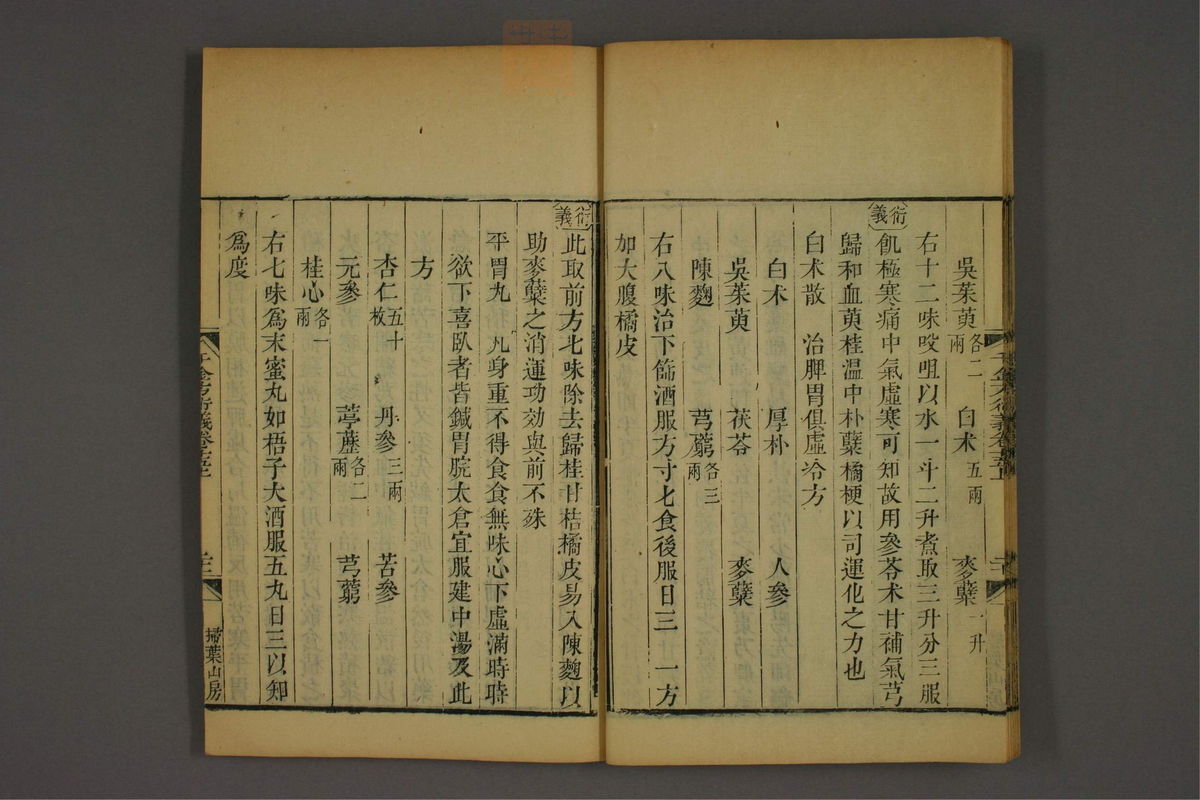 吳茱萸各二兩　白术五兩　麥蘗一升
右十二味㕮咀以水一斗二升煮取三升分三服
衍義
飢極寒痛中氣虛寒可知故用參苓术甘補氣芎
歸和血萸桂温中朴蘗橘梗以司運化之力也
白术散　治脾胃俱虛冷方
白术　厚朴　人參
吳茱萸　茯苓　麥蘗
陳麴　芎藭各三兩
右八味治下篩酒服方寸匕食後服日三　一方
加大腹橘皮
衍義
此取前方七味除去歸桂甘桔橘皮易入陳麴以
助麥蘗之消運功効與前不殊
平胃丸　凡身重不得食食無味心下虛滿時時
欲下喜臥者皆鍼胃脘太倉宜服建中湯及此
方
杏仁五十枚　丹參三兩　苦參
元參　葶藶各二兩　芎藭
桂心各一兩
右七味爲末蜜丸如梧子大酒服五丸日三以知
爲度
千金方衍義卷
掃葉山房